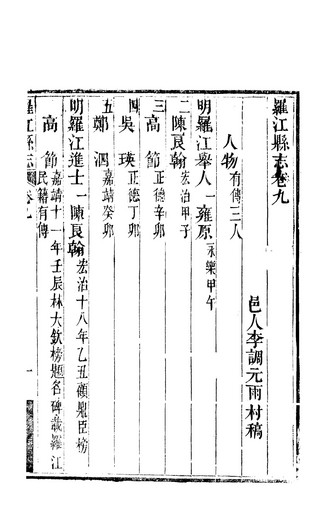 羅江縣志卷九
邑人李調元雨村稿
人物有傳三人
明羅江舉人一雍原永樂甲午
二陳良翰宏治甲子
三高節正德辛卯
四吳瑛正德丁卯
五鄭泗嘉靖癸卯
明羅江進士一陳良翰宏治十八年乙丑顧鼎臣榜
高節嘉靖十一年壬辰林大欽榜題名碑載羅江
民籍有傳
羅江縣志
卷九
一